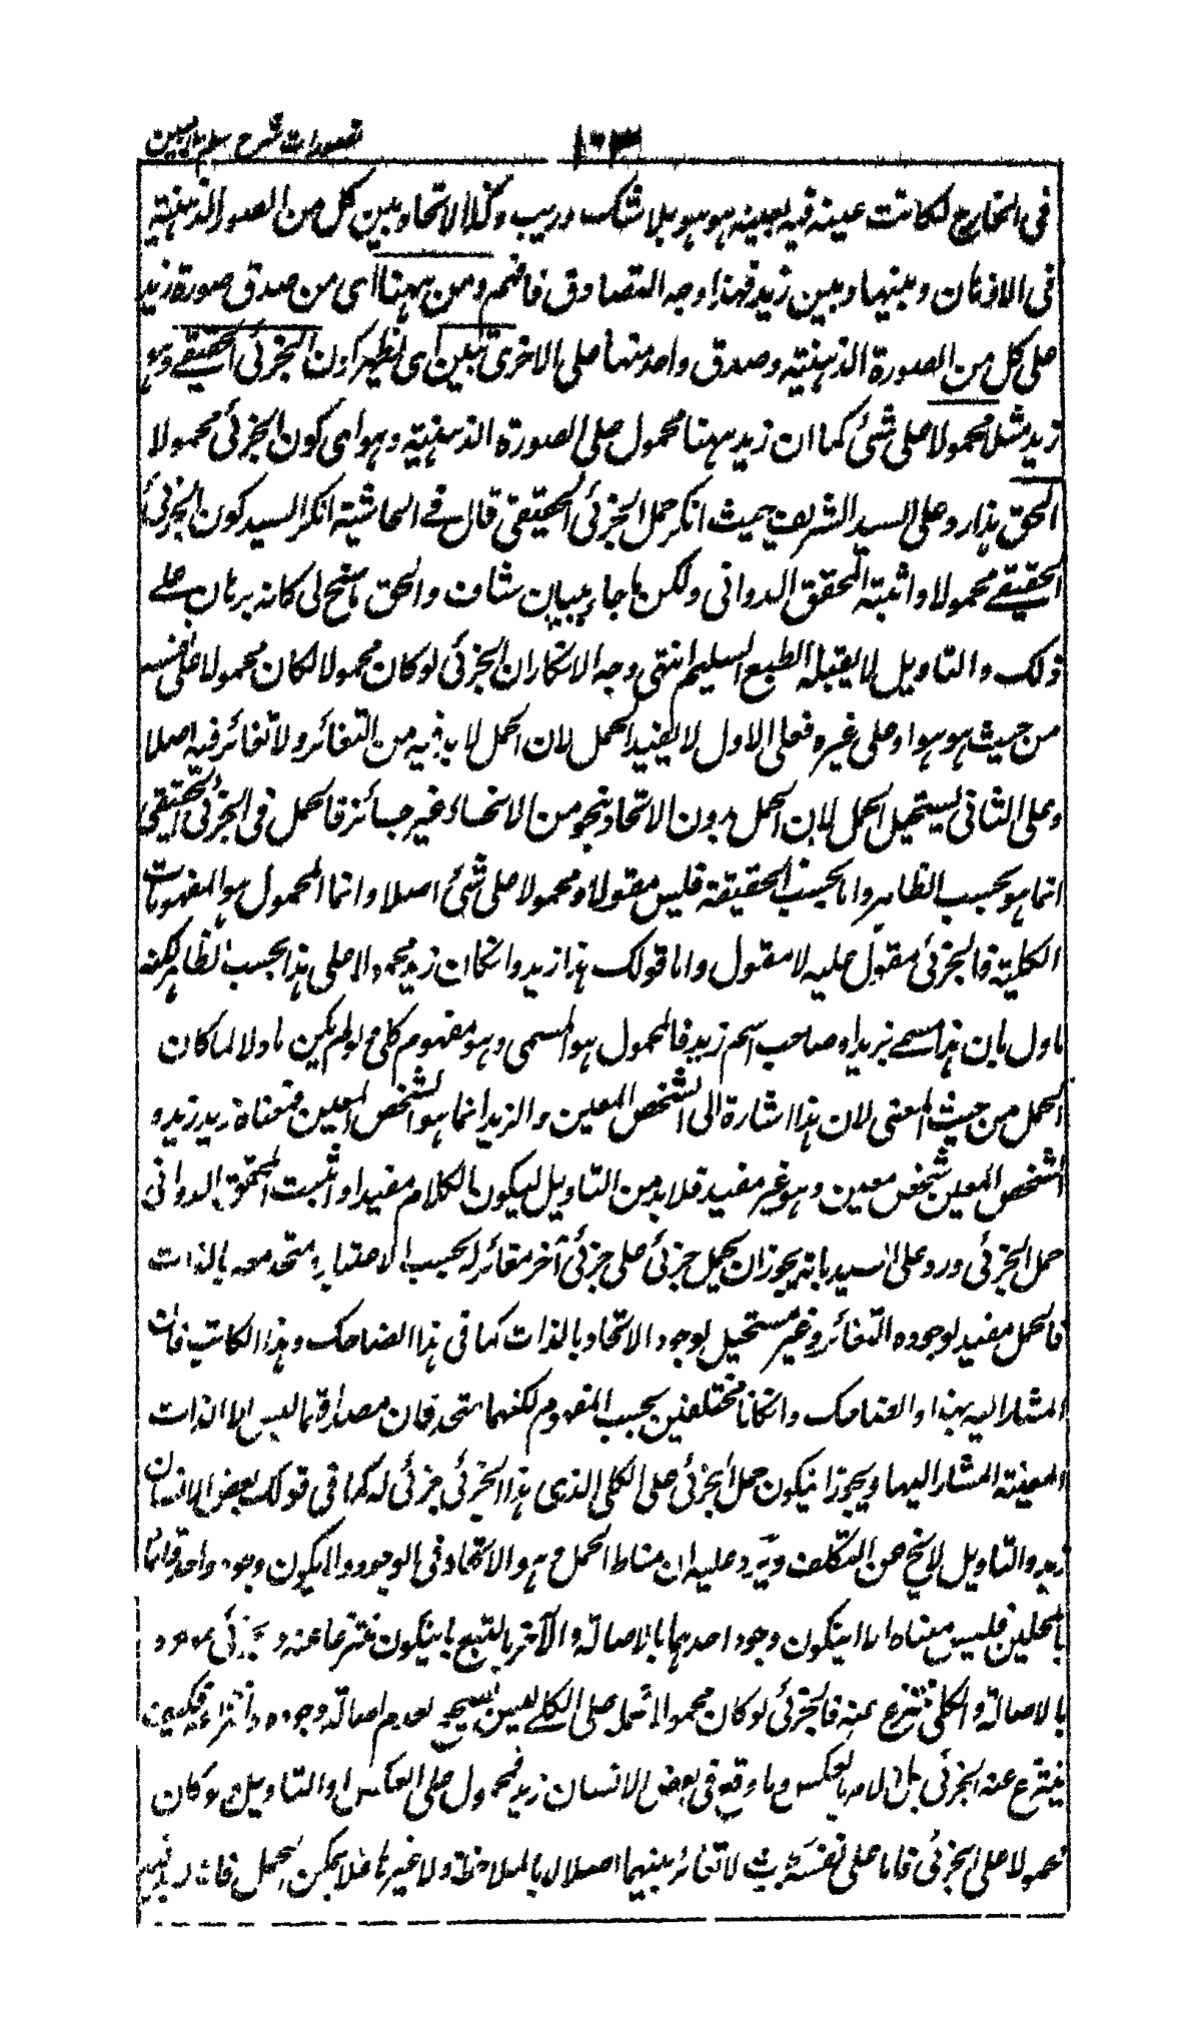 تصورات شرح سلم ملا مبین
١٠٣
فی الخارج لکانت عینه فیه بعینه هو هو بلا شک وریب وکذا الاتحاد بین کل من الصور الذهنیة
فی الاذهان وبینها وبین زید فهذا وجه التصادق فافهم ومن ههنا ای من صدق صورة زید
علی کل من الصورة الذهنیة وصدق واحد منها علی الاخری تبین ای یظهر کون الجزئی الحقیقے وهو
زید مثلا محمولا علی شئ کما ان زید ههنا محمول علی الصورة الذهنیة وهو ای کون الجزئی محمولا
الحق هذا رد علی السید الشریف حیث انکر حمل الجزئی الحقیقی قال فے الحاشیة انکر السید کون الجزئی
الحقیقے محمولا واثبته المحقق الدوانی ولکن ما جاء ببیان شاف والحق ما سنح لی کانه برهان علے
ذلک والتاویل لا یقبله الطبع السلیم انتهی وجه الانکار ان الجزئی لو کان محمولا لکان محمولا علی نفسه
من حیث هو هو او علی غیره فعلی الاول لا یفید الحمل لان الحمل لا بد فیه من التغائر ولا تغائر فیه اصلا
وعلی الثانی یستحیل الحمل لان الحمل بدون الاتحاد بنحو من الانحاء غیر جائز فالحمل فی الجزئی الحقیقی
انما هو بحسب الظاهر واما بحسب الحقیقة فلیس مقولا ومحمولا علی شئ اصلا وانما المحمول هو المفهومات
الکلیة فالجزئی مقول علیه لا مقول واما قولک هذا زید وان کان زید محمولا علی هذا بحسب الظاهر لکنه
ماول بان هذا مسمے بزید او صاحب اسم زید فالمحمول هو المسمی وهو مفهوم کلی ولو لم یکن ماولا لما کان
الحمل من حیث المعنی لان هذا اشارة الی الشخص المعین والزید انما هو الشخص المعین فمعناه زید زید و
الشخص المعین شخص معین وهو غیر مفید فلا بد من التاویل لیکون الکلام مفیدا واثبت المحقق الدوانی
حمل الجزئی ورد علی السید بانه یجوز ان یحمل جزئی علی جزئی آخر مغائر له بحسب الاعتبار ومتحد معه بالذات
فالحمل مفید لوجود التغائر وغیر مستحیل لوجود الاتحاد بالذات کما فی هذا الضاحک وهذا الکاتب فان
المشار الیه بهذا والضاحک وان کانا مختلفین بحسب المفهوم لکنهما متحد فان مصداقهما لیس الا الذات
المعینة المشار الیها ویجوز ان یکون حمل الجزئی علی الکلی الذی هذا الجزئی جزئی له کما فی قولک بعض الانسان
زید والتاویل لا یخ عن التکلف ویرد علیه ان مناط الحمل هو الاتحاد فی الوجود والیکون وجود واحد قائما
بالمحلین فلیس معناه الا ان یکون وجود احدهما بالاصالة والآخر بالتبع بان یکون منتزعا عنه والجزئی موجود
بالاصالة والکلی منتزع عنه فالجزئی لو کان محمولا لحمل علی الکلے لعین بصحیح لعدم اصالة وجوده وانتزاعه فکیف
ینتزع عنه الجزئی بل الامر بالعکس وما وقع فی بعض الانسان زید محمول علی العکس او التاویل ولو کان
محمولا علی الجزئی فاما علی نفسه بحیث لا تغائر بینهما اصلا لا بالملاحظة ولا غیرها فلا یمکن الحمل فانه لا بد فیه